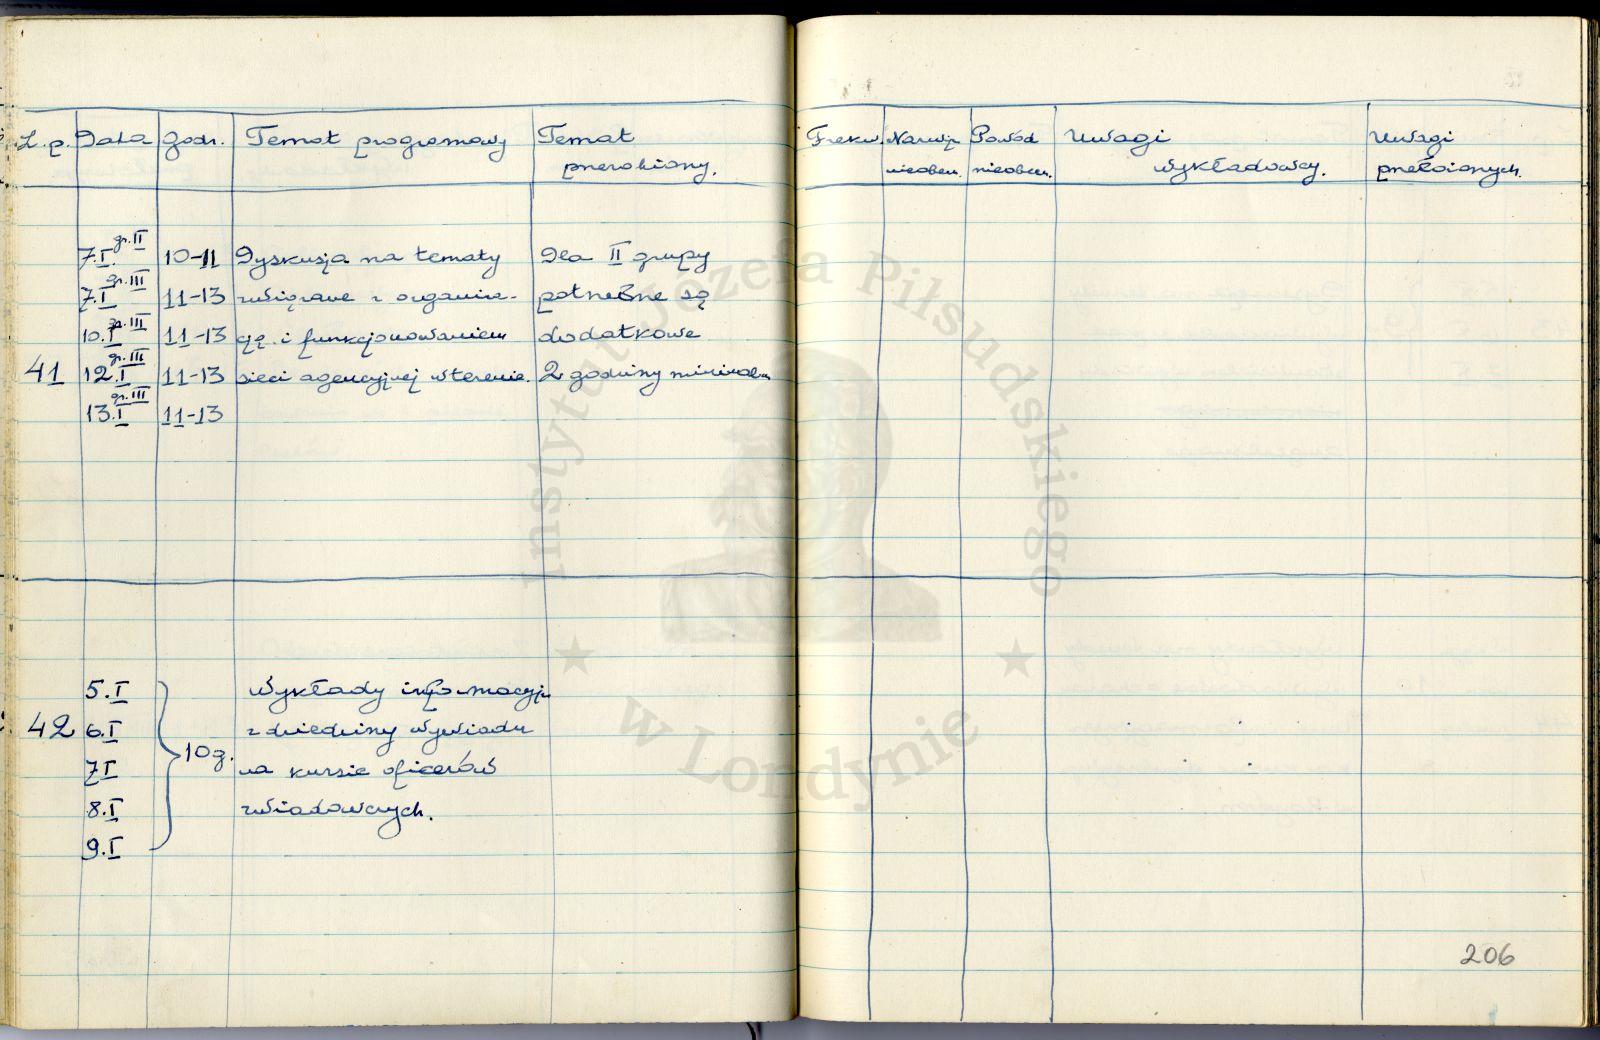 L.p. Data Godz. Temat programowy Temat
przerobiony.
Frekw. Nazwisk. Powód Uwagi Uwagi
nieobecn. nieobecn. wykładowcy. przełożonych.
7.I. gr.II 10-11 Dyskusja na tematy Dla II grupy
7.I gr.III 11-13 związane z organiza- potrzebne są
10.I gr.III 11-13 cją i funkcjonowaniem dodatkowe
41 12.I gr.III 11-13 sieci agencyjnej w terenie. 2 godziny minimum
13.I gr.III 11-13
5.I Wykłady informacyjn
42 6.I z dziedziny wywiadu
7I 10g. na kursie oficerów
8.I zwiadowczych.
9.I
206
Instytut Józefa Piłsudskiego
w Londynie